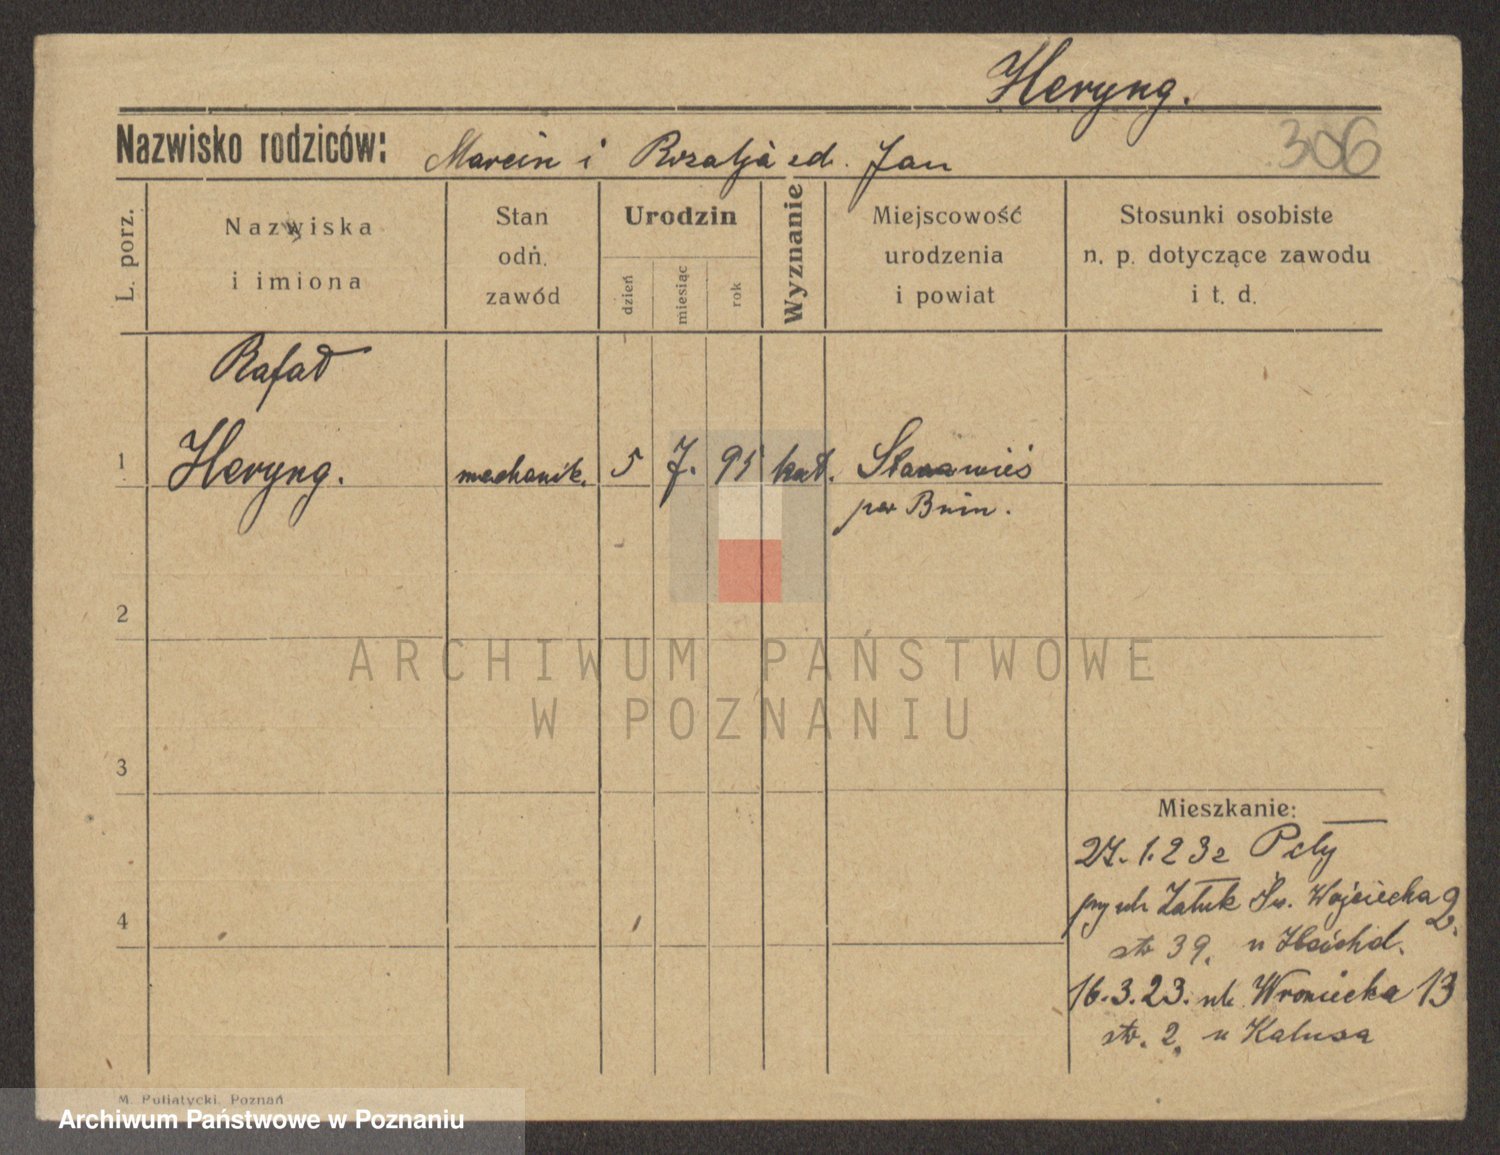 Heryng.
306
Nazwisko rodziców: Marcin i Rozalja zd. Jan
L. porz.
Nazwiska i imiona
Stan odń. zawód
Urodzin
dzień
miesiąc
rok
Wyznanie
Miejscowość urodzenia i powiat
Stosunki osobiste n. p. dotyczące zawodu i t. d.
Rafał
1 Heryng. mechanik. 5 7. 95 kat. Starawieś
pow Bnin.
2
3
4
Mieszkanie:
27.1.23 z
ul. Św. Wojciecha 2.
str 39. u
16.3.23. ul. Wroniecka 13
str. 2. u Kalusa
M. Putiatycki, Poznań
ARCHIWUM PAŃSTWOWE
W POZNANIU
Archiwum Państwowe w Poznaniu